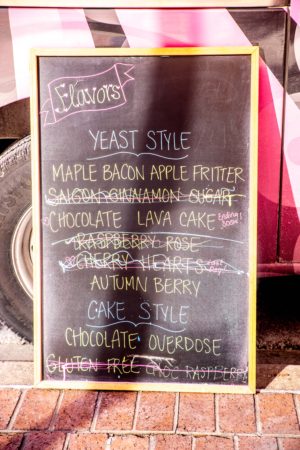 Flavors
YEAST STYLE
MAPLE BACON APPLE FRITTER
SAIGON CINNAMON SUGAR
CHOCOLATE LAVA CAKE Ending Soon!
RASPBERRY ROSE
CHERRY HEARTS
AUTUMN BERRY
CAKE STYLE
CHOCOLATE OVERDOSE
GLUTEN FREE CHOC RASPBERRY